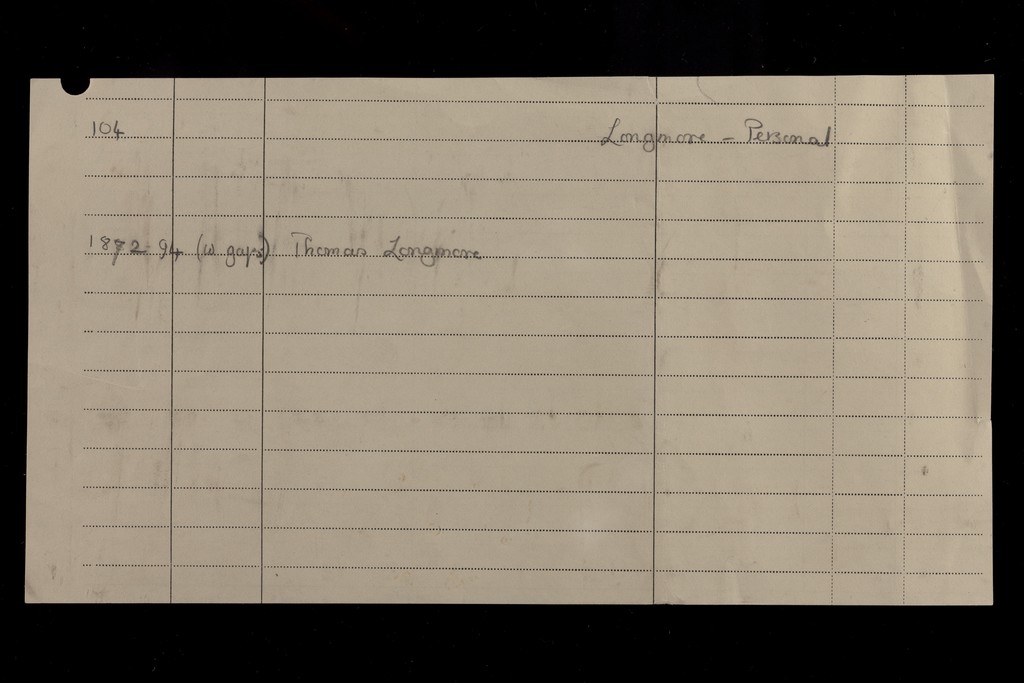 104 Longmore - Personal
1872-94 (w gaps) Thomas Longmore